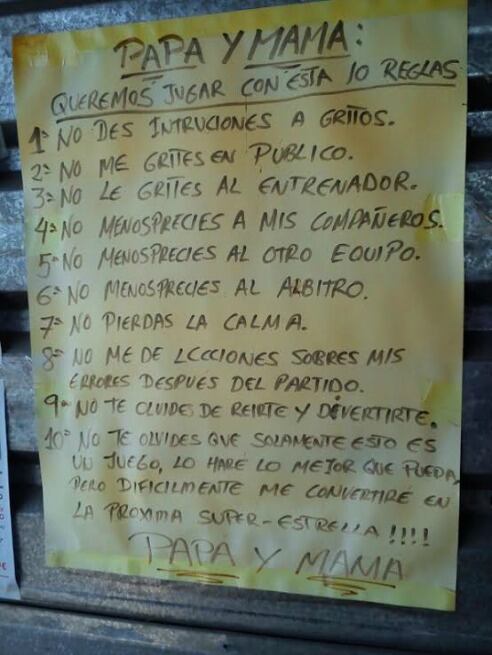 PAPA Y MAMA:
QUEREMOS JUGAR CON ESTA 10 REGLAS
1ª NO DES INTRUCIONES A GRITOS.
2ª NO ME GRITES EN PUBLICO.
3ª NO LE GRITES AL ENTRENADOR.
4ª NO MENOSPRECIES A MIS COMPAÑEROS.
5ª NO MENOSPRECIES AL OTRO EQUIPO.
6ª NO MENOSPRECIES AL ALBITRO.
7ª NO PIERDAS LA CALMA.
8ª NO ME DE LCCCIONES SOBRES MIS
ERRORES DESPUES DEL PARTIDO.
9ª NO TE OLVIDES DE REIRTE Y DIVERTIRTE.
10ª NO TE OLVIDES QUE SOLAMENTE ESTO ES
UN JUEGO, LO HARÉ LO MEJOR QUE PUEDA,
PERO DIFICILMENTE ME CONVERTIRÉ EN
LA PROXIMA SUPER-ESTRELLA !!!!
PAPA Y MAMA